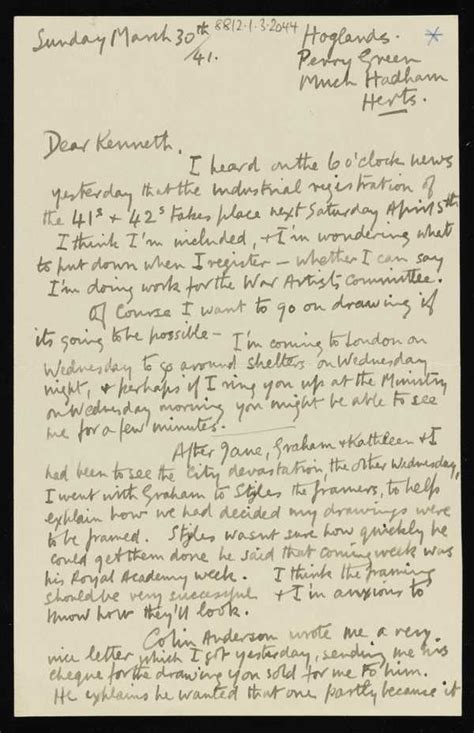 8812.1.3.2044
Sunday March 30th Hoglands.
/41. Perry Green
Much Hadham
Herts.
Dear Kenneth,
I heard on the 6 o'clock news
yesterday that the industrial registration of
the 41s + 42s takes place next Saturday April 5th
I think I'm included, + I'm wondering what
to put down when I register – whether I can say
I'm doing work for the War Artists Committee.
Of Course I want to go on drawing if
its going to be possible – I'm coming to London on
Wednesday to go around shelters on Wednesday
night, + perhaps if I ring you up at the Ministry
on Wednesday morning you might be able to see
me for a few minutes.
After Jane, Graham + Kathleen + I
had been to see the City devastation, the other Wednesday,
I went with Graham to Styles the framers, to help
explain how we had decided my drawings were
to be framed. Styles wasnt sure how quickly he
could get them done he said that coming week was
his Royal Academy week. I think the framing
should be very successful + I'm anxious to
know how they'll look.
Colin Anderson wrote me a very
nice letter which I got yesterday, sending me his
cheque for the drawing you sold for me to him.
He explains he wanted that one partly because it